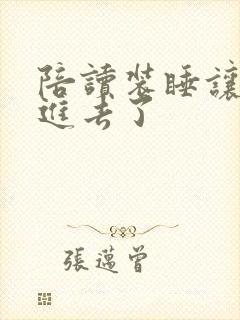 陪讀裝睡讓
進去了
張邁曾